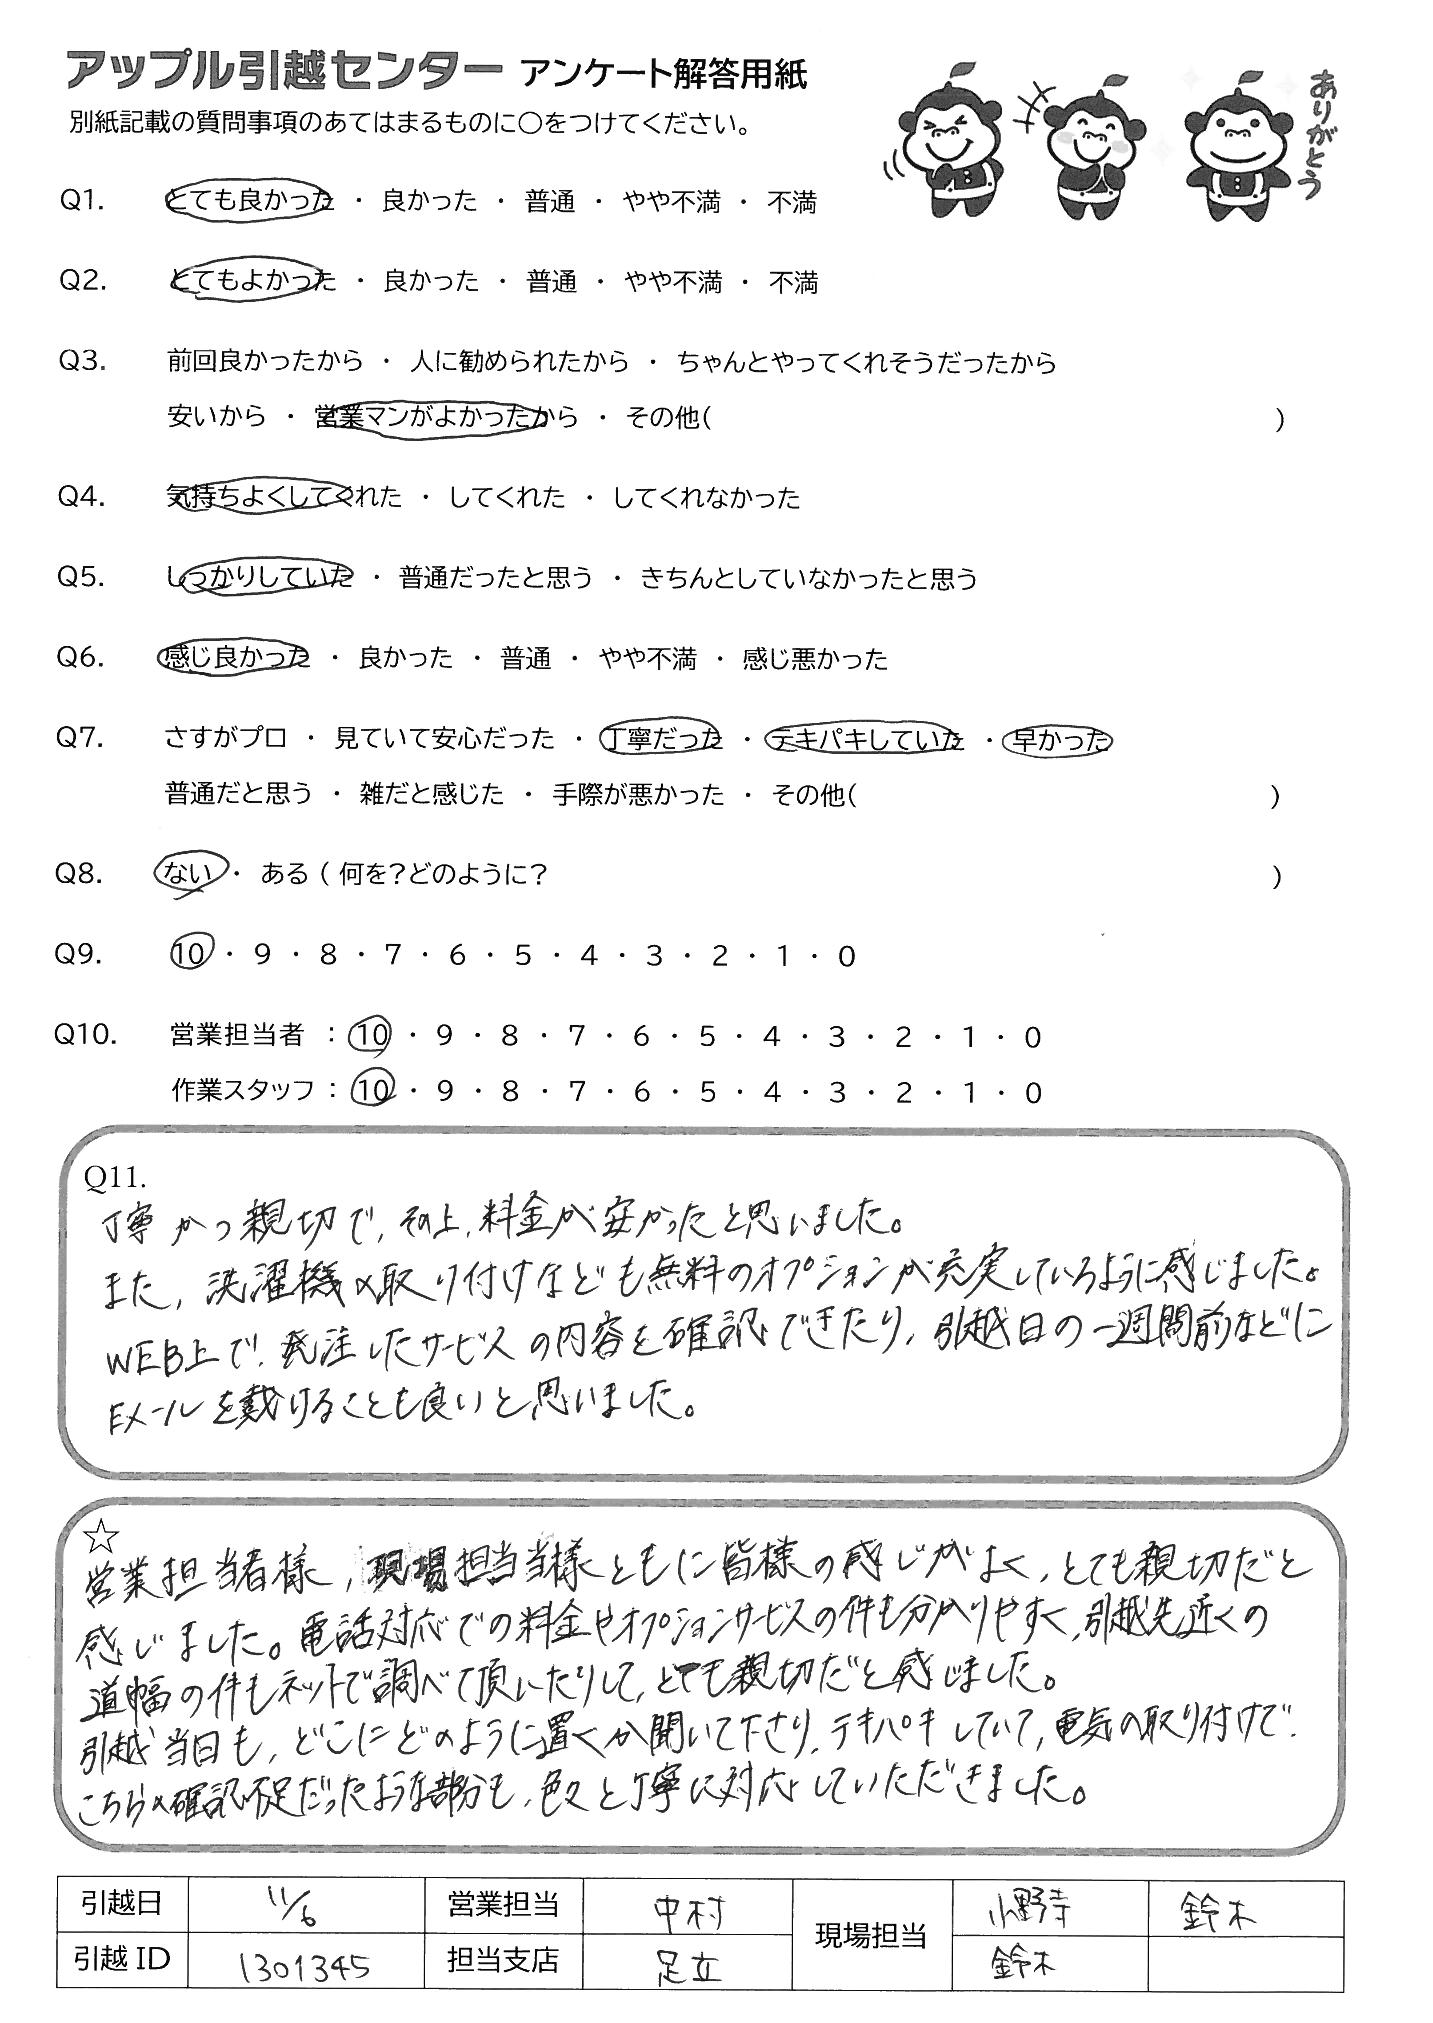 アップル引越センター アンケート解答用紙
別紙記載の質問事項のあてはまるものに○をつけてください。
ありがとう
Q1. とても良かった ・ 良かった ・ 普通 ・ やや不満 ・ 不満
Q2. とてもよかった ・ 良かった ・ 普通 ・ やや不満 ・ 不満
Q3. 前回良かったから ・ 人に勧められたから ・ ちゃんとやってくれそうだったから
安いから ・ 営業マンがよかったから ・ その他( )
Q4. 気持ちよくしてくれた ・ してくれた ・ してくれなかった
Q5. しっかりしていた ・ 普通だったと思う ・ きちんとしていなかったと思う
Q6. 感じ良かった ・ 良かった ・ 普通 ・ やや不満 ・ 感じ悪かった
Q7. さすがプロ ・ 見ていて安心だった ・ 丁寧だった ・ テキパキしていた ・ 早かった
普通だと思う ・ 雑だと感じた ・ 手際が悪かった ・ その他( )
Q8. ない ・ ある ( 何を?どのように? )
Q9. 10 ・ 9 ・ 8 ・ 7 ・ 6 ・ 5 ・ 4 ・ 3 ・ 2 ・ 1 ・ 0
Q10. 営業担当者 : 10 ・ 9 ・ 8 ・ 7 ・ 6 ・ 5 ・ 4 ・ 3 ・ 2 ・ 1 ・ 0
作業スタッフ : 10 ・ 9 ・ 8 ・ 7 ・ 6 ・ 5 ・ 4 ・ 3 ・ 2 ・ 1 ・ 0
Q11.
丁寧かつ親切で、その上、料金が安かったと思いました。
また、洗濯機の取り付けなども無料のオプションが充実しているように感じました。
WEB上で、発注したサービスの内容を確認できたり、引越日の一週間前などに
Eメールを戴けることも良いと思いました。
☆
営業担当者様、現場担当当様ともに皆様の感じがよく、とても親切だと
感じました。電話対応での料金やオプションサービスの件も分かりやすく、引越先近くの
道幅の件もネットで調べて頂いたりして、とても親切だと感じました。
引越当日も、どこにどのように置くか聞いて下さり、テキパキしていて、電気の取り付けで、
こちらの確認不足だったような部分も、色々と丁寧に対応していただきました。
引越日 11/6 営業担当 中村 現場担当 小野寺 鈴木
引越ID 1301345 担当支店 足立 鈴木